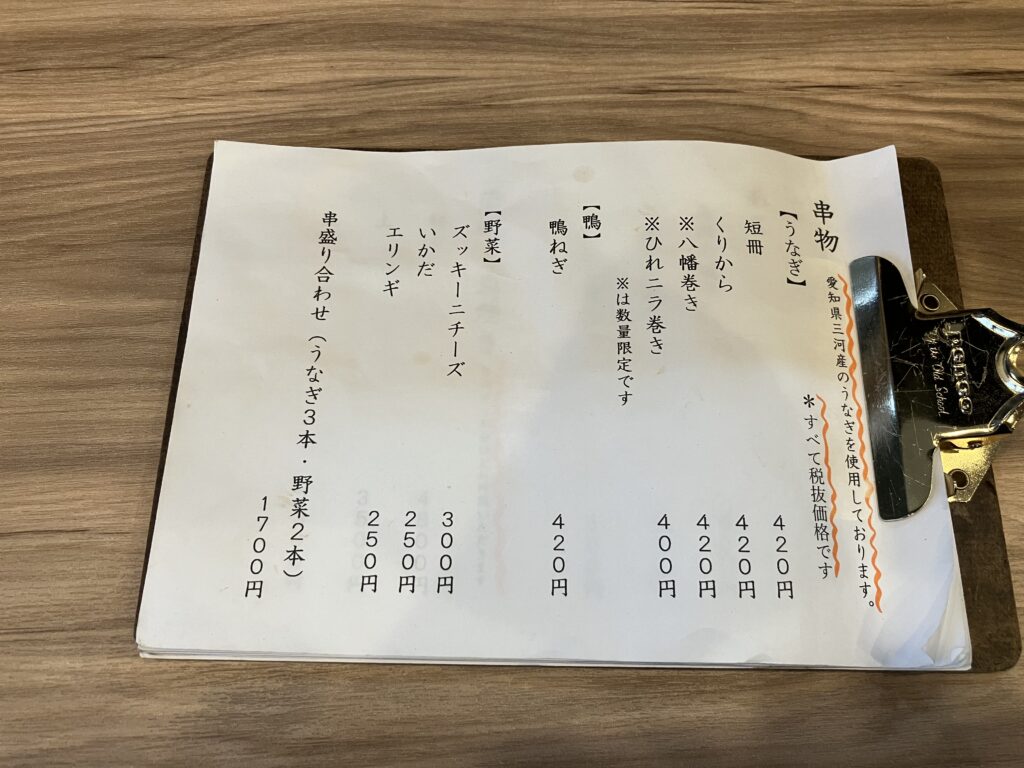 串物
愛知県三河産のうなぎを使用しております。
＊すべて税抜価格です
【うなぎ】
短冊 420円
くりから 420円
※八幡巻き 420円
※ひれニラ巻き 400円
※は数量限定です
【鴨】
鴨ねぎ 420円
【野菜】
ズッキーニチーズ 300円
いかだ 250円
エリンギ 250円
串盛り合わせ（うなぎ3本・野菜2本）
1700円
Penco
Old School